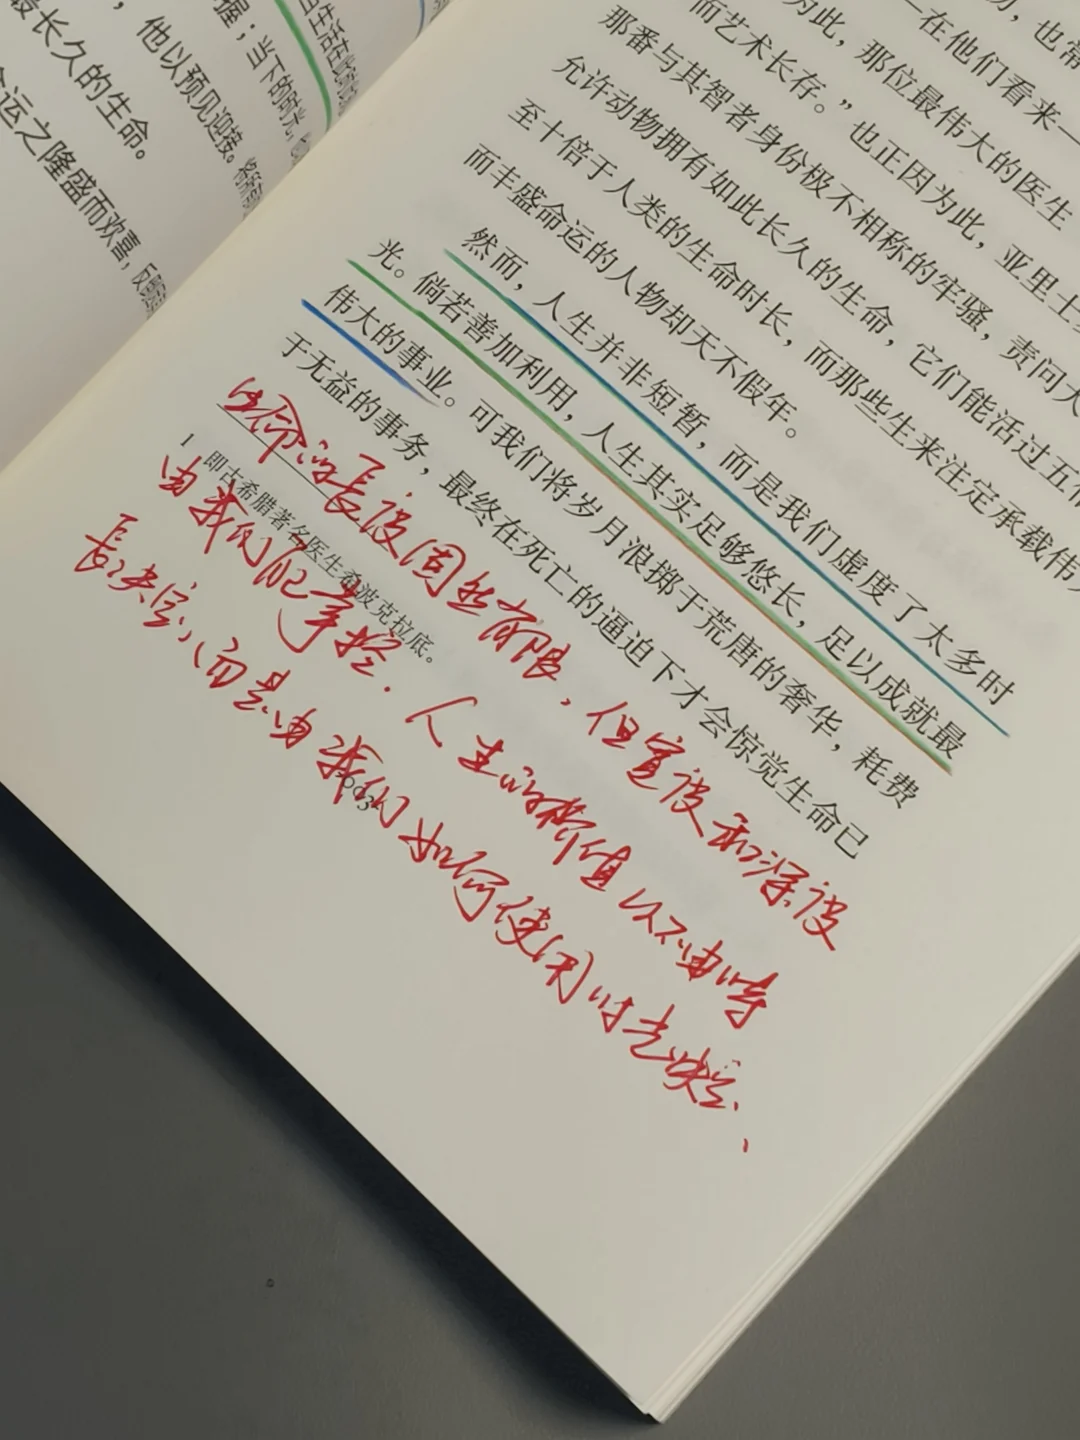 握；当下的时光，
，他以预见迎接。
最长久的生命。
运之隆盛而欢喜，
，也常
——在他们看来——
为此，那位最伟大的医生
而艺术长存。”也正因为此，亚里士
那番与其智者身份极不相称的牢骚，责问大
允许动物拥有如此长久的生命，它们能活过五倍
至十倍于人类的生命时长，而那些生来注定承载伟大
而丰盛命运的人物却天不假年。
然而，人生并非短暂，而是我们虚度了太多时
光。倘若善加利用，人生其实足够悠长，足以成就最
伟大的事业。可我们将岁月浪掷于荒唐的奢华，耗费
于无益的事务，最终在死亡的逼迫下才会惊觉生命已
1 即古希腊著名医生希波克拉底。
生命的長度固然有限，但宽度和深度
由我们配掌控．人生的价值从不由时
長决定，而是由我们如何使用时光决定、
003